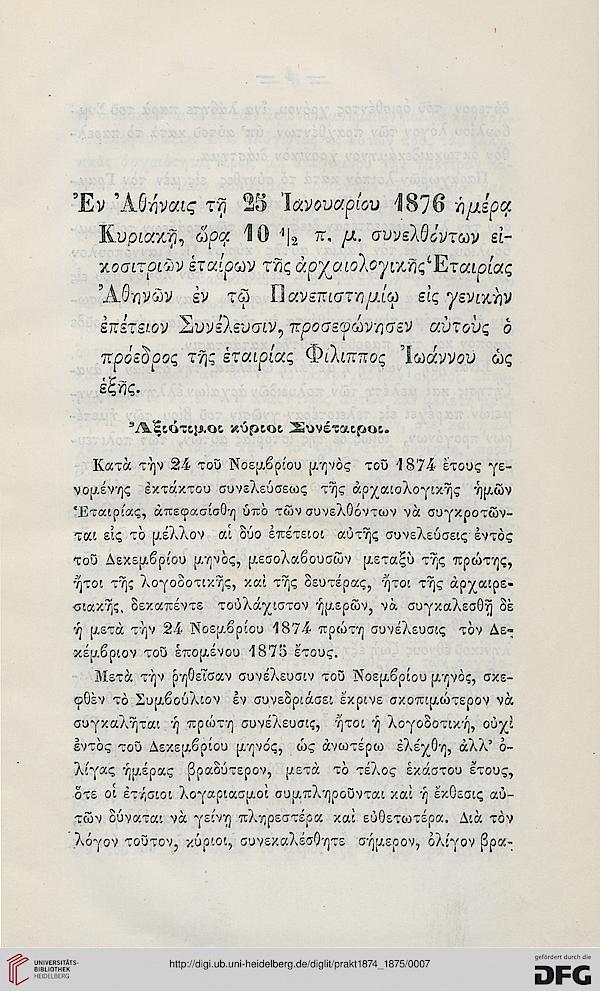 Ἐν Ἀθήναις τῇ 25 Ἰανουαρίου 1876 ἡμέρᾳ
Κυριακῇ, ὥρᾳ 10 ¹|₂ π. μ. συνελθόντων εἰ-
κοσιτριῶν ἑταίρων τῆς ἀρχαιολογικῆς Ἑταιρίας
Ἀθηνῶν ἐν τῷ Πανεπιστημίῳ εἰς γενικὴν
ἐπέτειον Συνέλευσιν, προσεφώνησεν αὐτοὺς ὁ
πρόεδρος τῆς ἑταιρίας Φίλιππος Ἰωάννου ὡς
ἑξῆς.
Ἀξιότιμοι κύριοι Συνέταιροι.
Κατὰ τὴν 24 τοῦ Νοεμβρίου μηνὸς τοῦ 1874 ἔτους γε-
νομένης ἐκτάκτου συνελεύσεως τῆς ἀρχαιολογικῆς ἡμῶν
Ἑταιρίας, ἀπεφασίσθη ὑπὸ τῶν συνελθόντων νὰ συγκροτῶν-
ται εἰς τὸ μέλλον αἱ δύο ἐπέτειοι αὐτῆς συνελεύσεις ἐντὸς
τοῦ Δεκεμβρίου μηνὸς, μεσολαβουσῶν μεταξὺ τῆς πρώτης,
ἤτοι τῆς λογοδοτικῆς, καὶ τῆς δευτέρας, ἤτοι τῆς ἀρχαιρε-
σιακῆς, δεκαπέντε τοὐλάχιστον ἡμερῶν, νὰ συγκαλεσθῇ δὲ
ἡ μετὰ τὴν 24 Νοεμβρίου 1874 πρώτη συνέλευσις τὸν Δε-
κέμβριον τοῦ ἑπομένου 1875 ἔτους.
Μετὰ τὴν ῥηθεῖσαν συνέλευσιν τοῦ Νοεμβρίου μηνὸς, σκε-
φθὲν τὸ Συμβούλιον ἐν συνεδριάσει ἔκρινε σκοπιμώτερον νὰ
συγκαλῆται ἡ πρώτη συνέλευσις, ἤτοι ἡ λογοδοτική, οὐχὶ
ἐντὸς τοῦ Δεκεμβρίου μηνός, ὡς ἀνωτέρω ἐλέχθη, ἀλλ' ὀ-
λίγας ἡμέρας βραδύτερον, μετὰ τὸ τέλος ἑκάστου ἔτους,
ὅτε οἱ ἐτήσιοι λογαριασμοὶ συμπληροῦνται καὶ ἡ ἔκθεσις αὐ-
τῶν δύναται νὰ γείνῃ πληρεστέρα καὶ εὐθετωτέρα. Διὰ τὸν
λόγον τοῦτον, κύριοι, συνεκαλέσθητε σήμερον, ὀλίγον βρα-
UNIVERSITÄTS-
BIBLIOTHEK
HEIDELBERG
http://digi.ub.uni-heidelberg.de/diglit/prakt1874_1875/0007
gefördert durch die
DFG